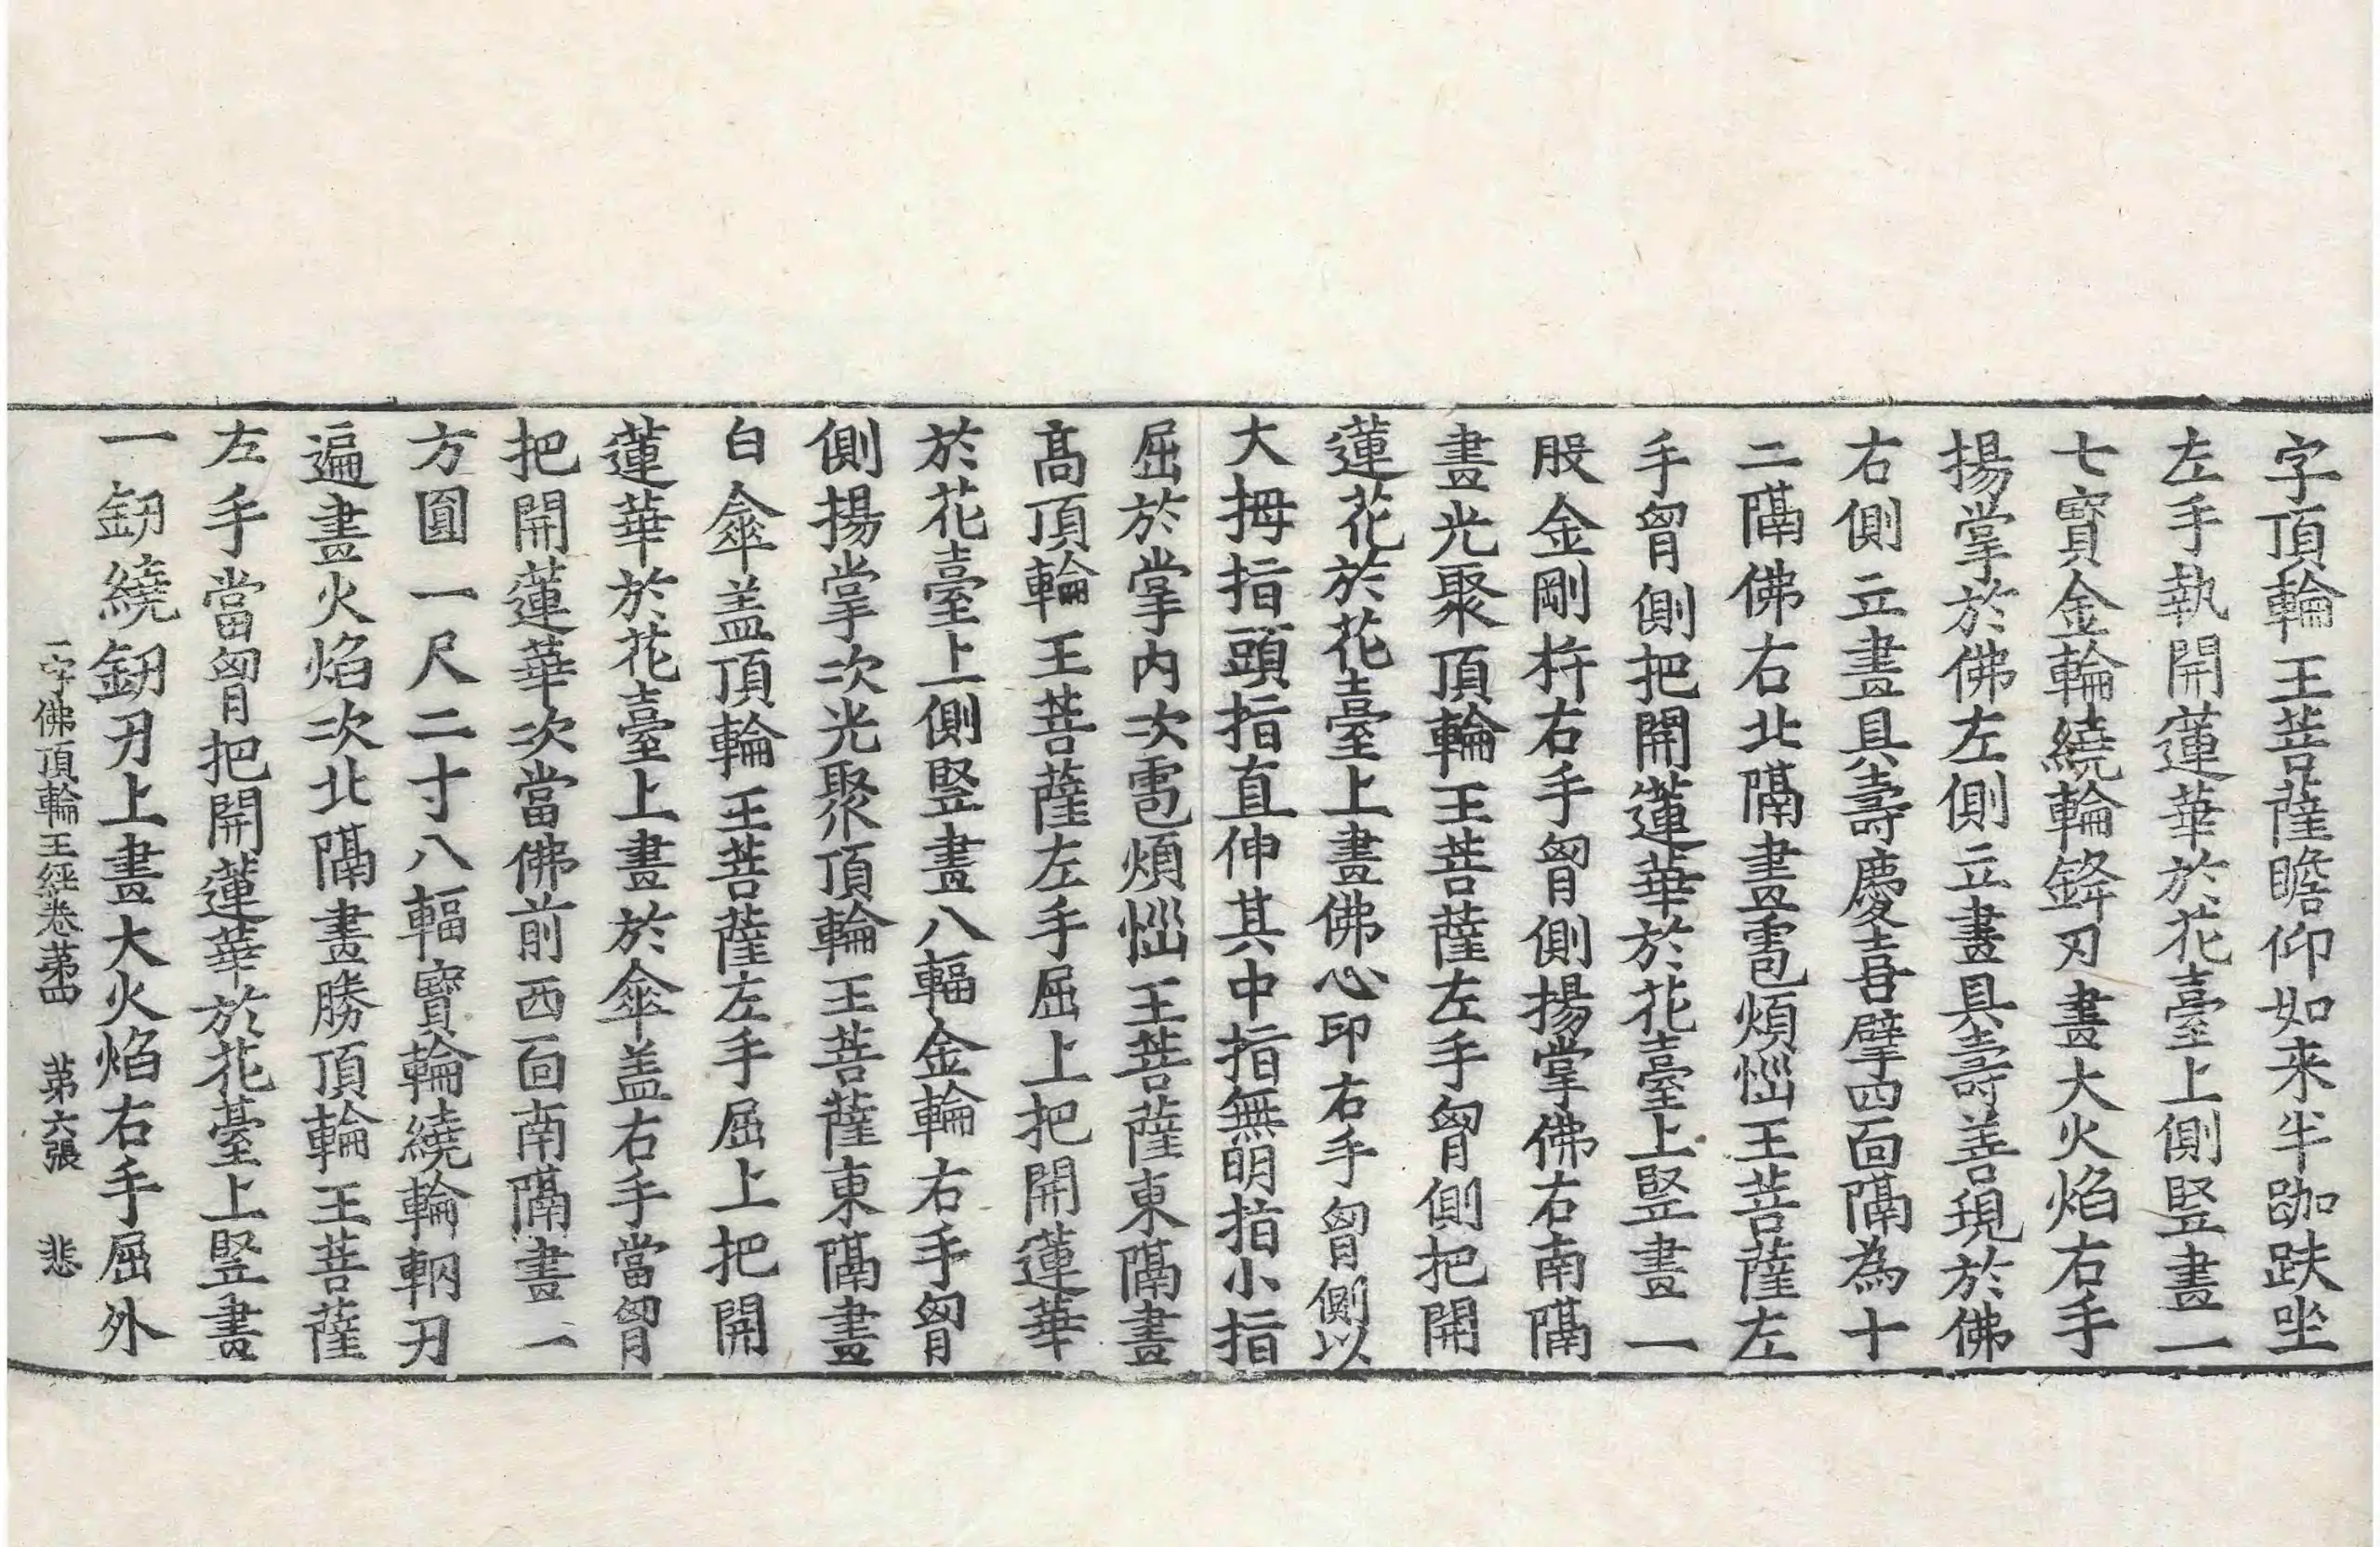 字頂輪王菩薩瞻仰如来半跏趺坐
左手執開蓮華於花臺上側竪畫一
七寶金輪繞輪鋒刃畫大火焰右手
揚掌於佛左側立畫具壽善現於佛
右側立畫具壽慶喜擘四面隔為十
二隔佛右北隔畫雹煩惱王菩薩左
手𦚾側把開蓮華於花臺上竪畫一
股金剛杵右手𦚾側揚掌佛右南隔
畫光聚頂輪王菩薩左手𦚾側把開
蓮花於花臺上畫佛心印右手𦚾側以
大拇指頭指直伸其中指無明指小指
屈於掌内次雹煩惱王菩薩東隔畫
髙頂輪王菩薩左手屈上把開蓮華
於花臺上側竪畫八輻金輪右手𦚾
側揚掌次光聚頂輪王菩薩東隔畫
白傘盖頂輪王菩薩左手屈上把開
蓮華於花臺上畫於傘盖右手當𦚾
把開蓮華次當佛前西面南隔畫一
方圓一尺二寸八輻寶輪繞輪輞刃
遍畫火焰次北隔畫勝頂輪王菩薩
左手當𦚾把開蓮華於花臺上竪畫
一釰繞釰刃上畫大火焰右手屈外
一字佛頂輪王經卷苐四 苐六張 悲